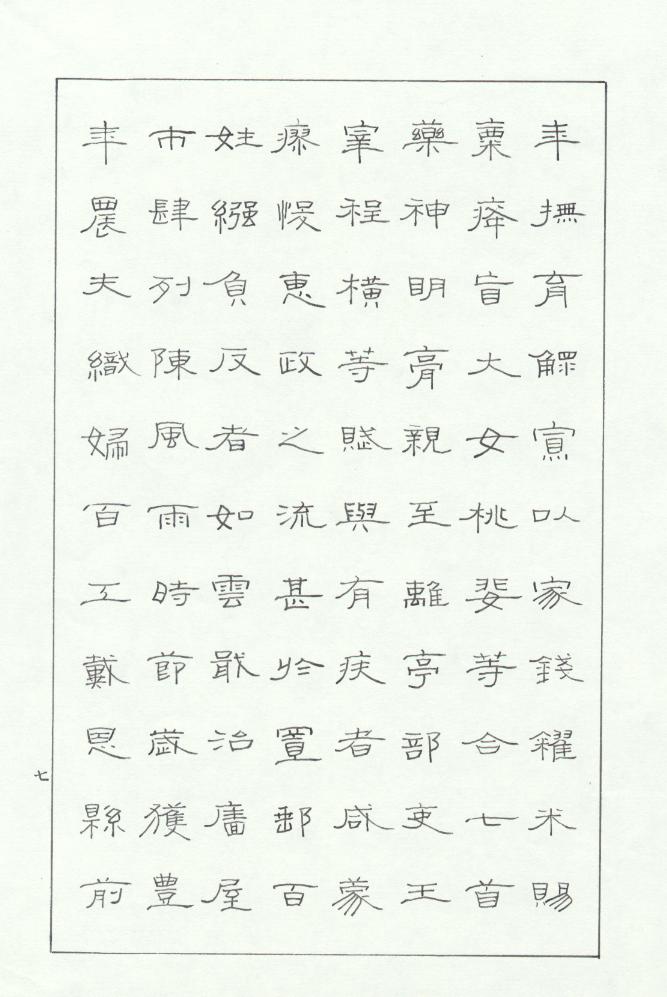 年撫育鰥寡以家錢糴米賜
粟癃盲大女桃婓等合七首
藥神明膏親至離亭部吏王
宰程橫等賦與有疾者咸蒙
瘳悛惠政之流甚於置郵百
姓繈負反者如雲戢治廧屋
市肆列陳風雨時節歲獲豐
年農夫織婦百工戴恩縣前
七